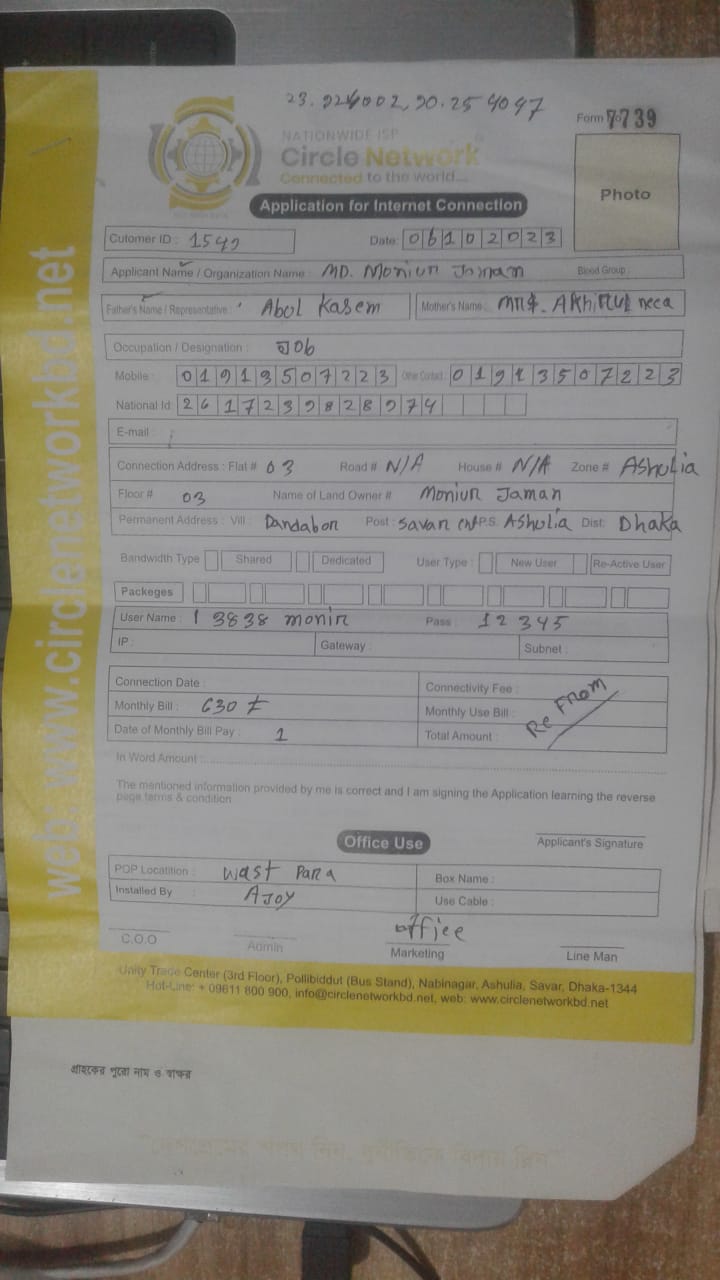 Form 7739
NATIONWIDE ISP
Circle Network
Connected to the world...
Application for Internet Connection
Photo
Cutomer ID : Date: 06102023
Applicant Name / Organization Name : MD. Moniur Jaman Blood Group :
Father's Name / Representative : Abul Kasem Mother's Name :
Occupation / Designation : Job
Mobile : 01913507223 Other Contact : 01913507223
National Id: 2617239828974
E-mail :
Connection Address : Flat # 03 Road # N/A House # N/A Zone # Ashulia
Floor # 03 Name of Land Owner # Moniur Jaman
Permanent Address : Vill : Dandabor Post : Savar P.S. Ashulia Dist: Dhaka
Bandwidth Type Shared Dedicated User Type : New User Re-Active User
Packeges
User Name : 3838 monir Pass : 12345
IP : Gateway : Subnet :
Connection Date : Connectivity Fee :
Monthly Bill : 630 Monthly Use Bill :
Date of Monthly Bill Pay : 1 Total Amount : Re From
In Word Amount :
The mentioned information provided by me is correct and I am signing the Application learning the reverse
page terms & condition
Applicant's Signature
Office Use
POP Locatition : wast Para Box Name :
Installed By : AJOY Use Cable :
office
C.O.O Admin Marketing Line Man
Unity Trade Center (3rd Floor), Pollibiddut (Bus Stand), Nabinagar, Ashulia, Savar, Dhaka-1344
Hot-Line: + 09611 800 900, info@circlenetworkbd.net, web: www.circlenetworkbd.net
web: www.circlenetworkbd.net
গ্রাহকের পুরো নাম ও স্বাক্ষর